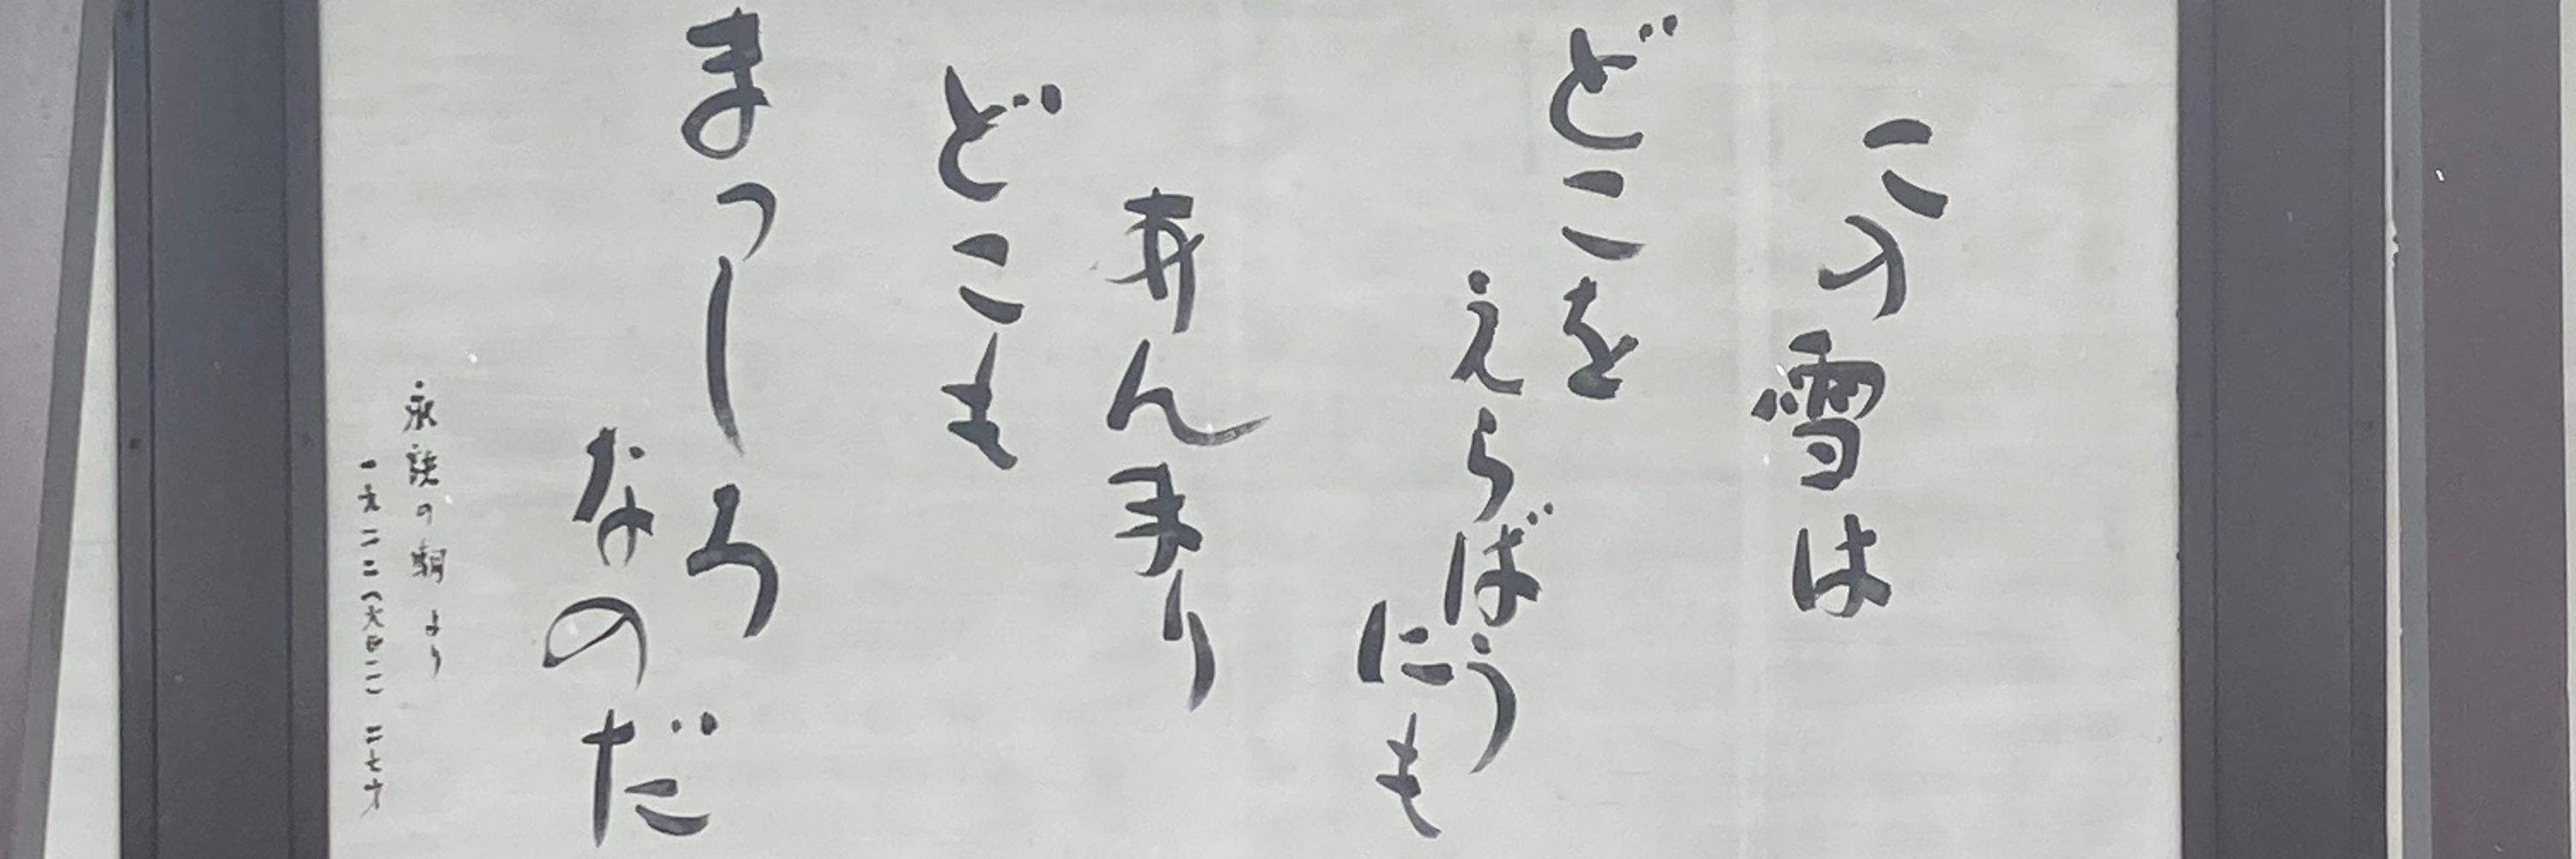 この雪は
どこを
えらばう
にも
あんまり
どこも
まっしろ
なのだ
永訣の朝より
一九二二(大正一一) 二七才